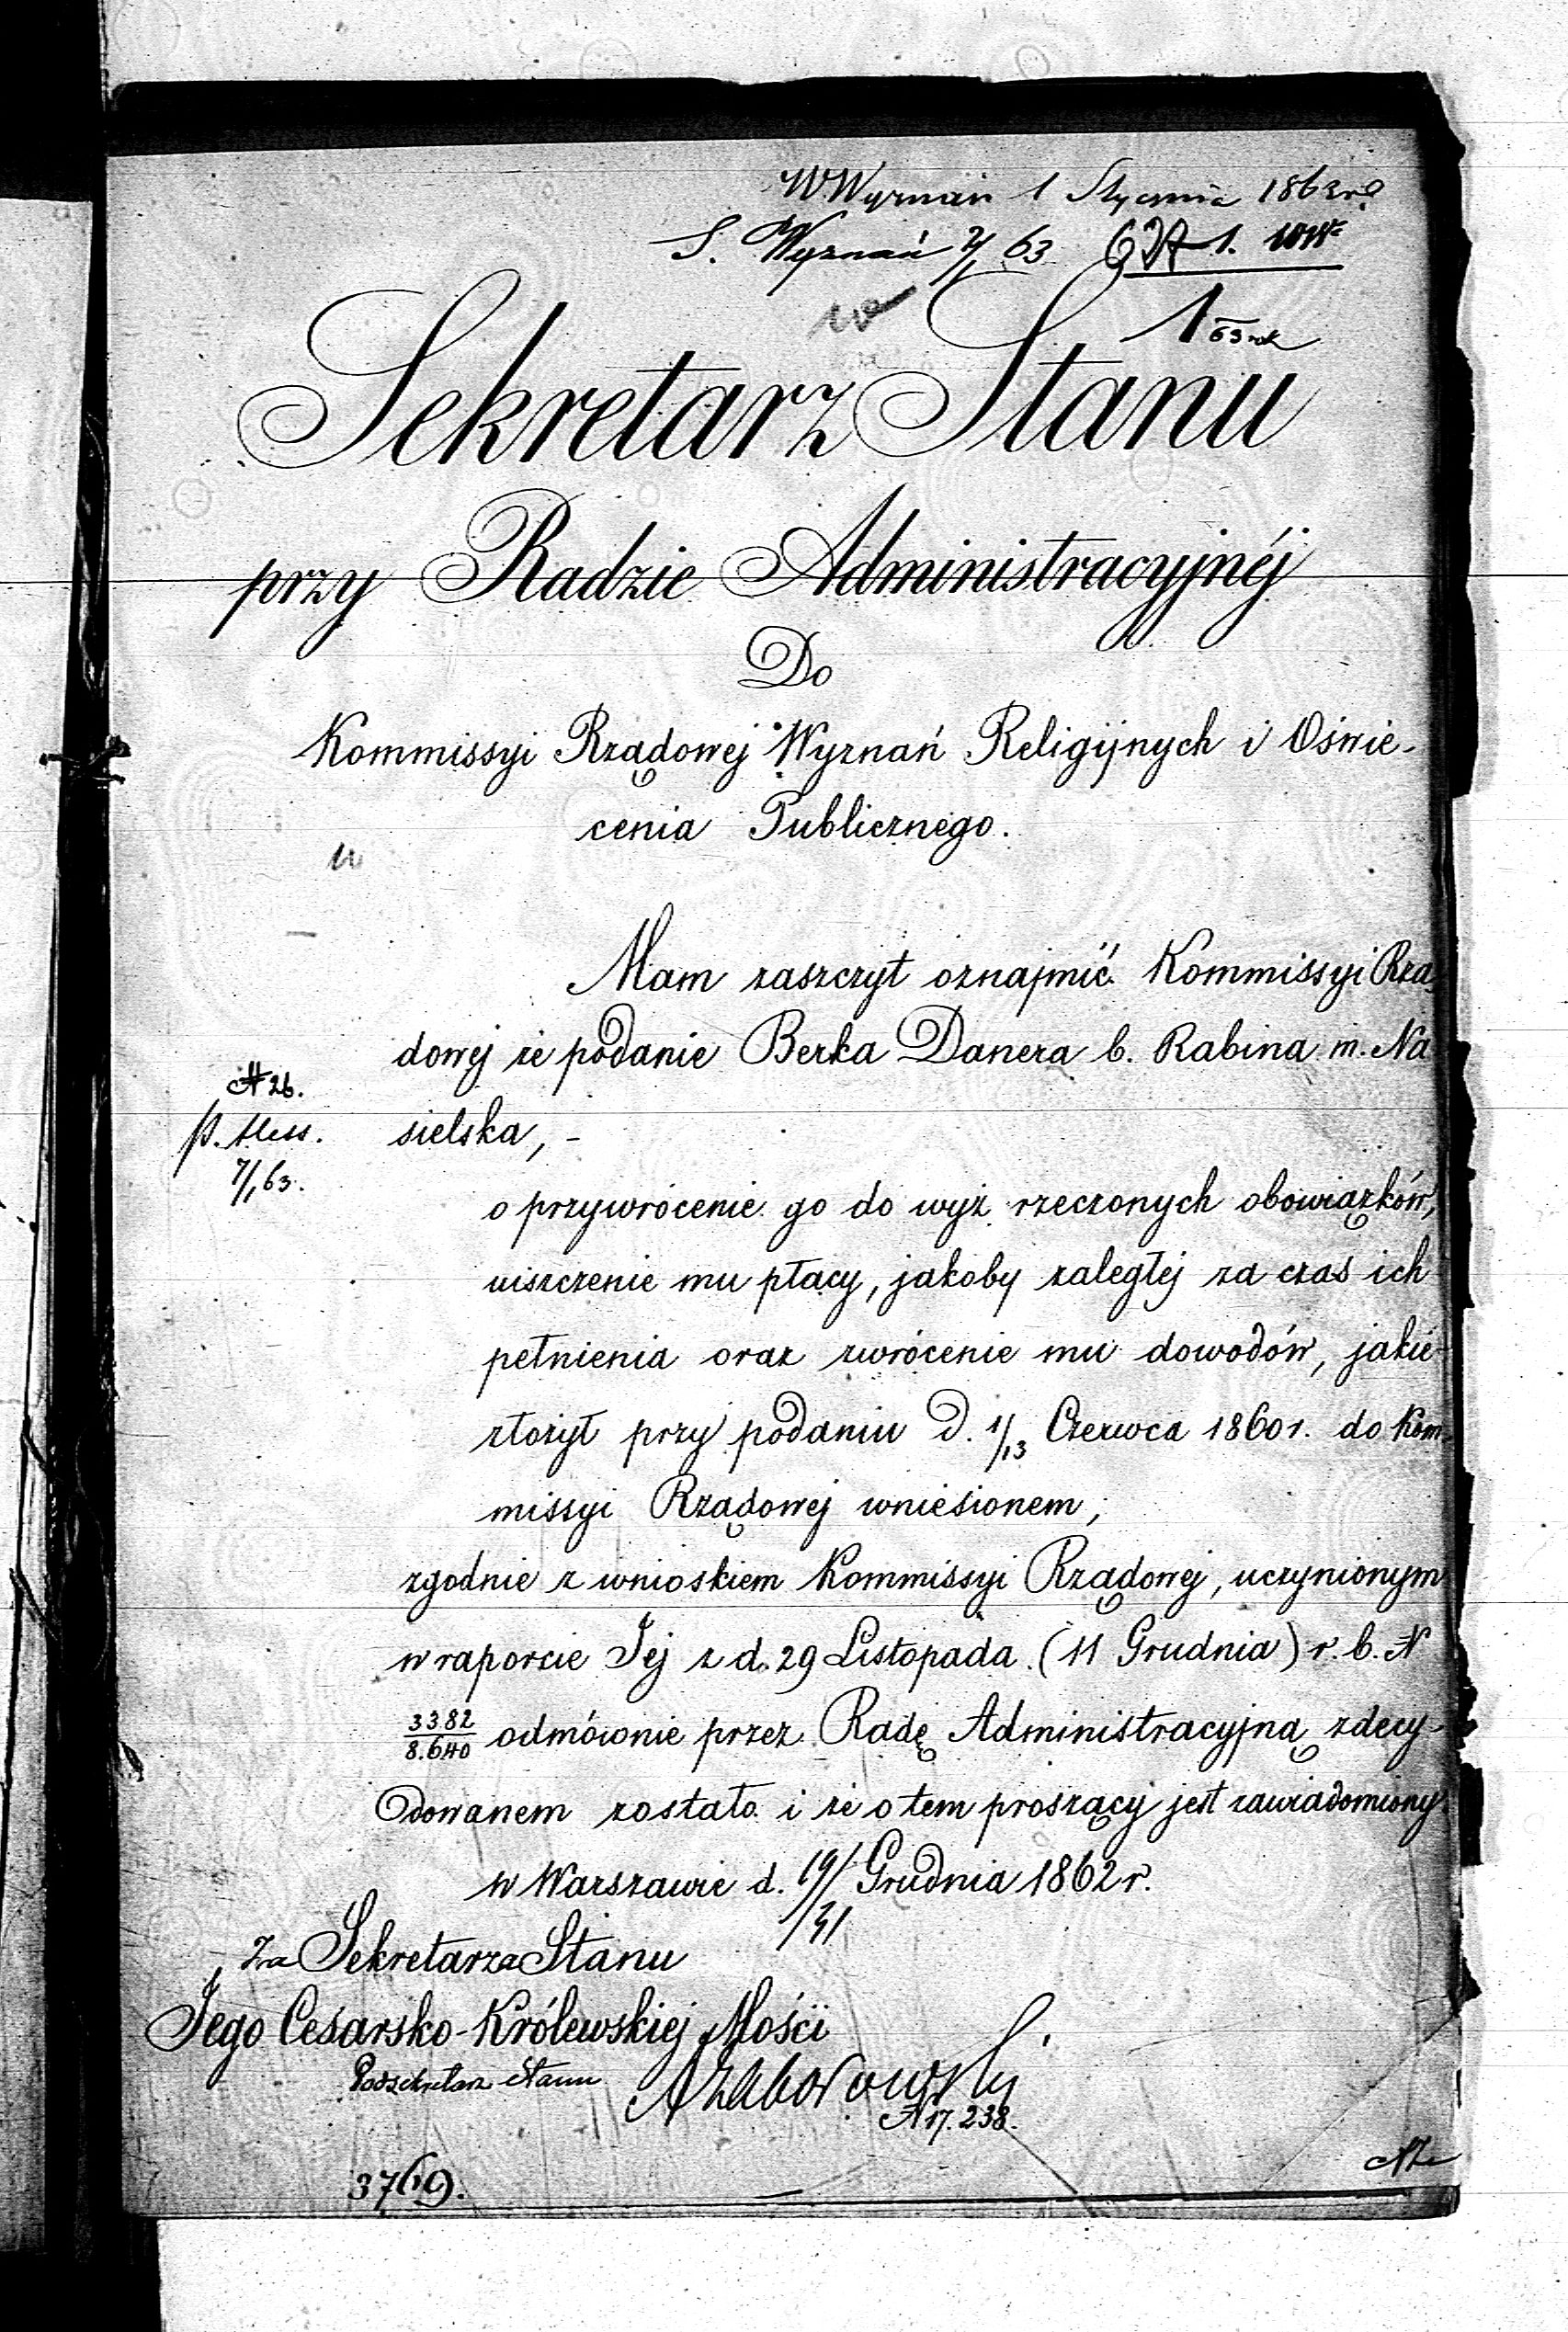 W Wyznań 1 Stycznia 1863 r.
S. Wyznań 2/1 63
1 63 rok
Sekretarz Stanu
przy Radzie Administracyjnéj
Do
Kommissyi Rządowej Wyznań Religijnych i Oświe-
cenia Publicznego.
Mam zaszczyt oznajmić Kommissyi Rzą-
dowej że podanie Berka Danera b. Rabina m. Na
sielska, -
N 26.
7/1 63.
o przywrócenie go do wyż rzeczonych obowiązków,
uiszczenie mu płacy, jakoby zaległej za czas ich
pełnienia oraz zwrócenie mu dowodów, jakie
złożył przy podaniu d. 1/13 Czerwca 1860 r. do Kom-
missyi Rządowej wniesionem,
zgodnie z wnioskiem Kommissyi Rządowej, uczynionym
w raporcie Jej z d. 29 Listopada (11 Grudnia) r. b. N
3382/8.640 odmównie przez Radę Administracyjną zdecy-
dowanem zostało i że o tem proszący jest zawiadomiony.
w Warszawie d. 19/31 Grudnia 1862 r.
Za Sekretarza Stanu
Jego Cesarsko-Królewskiej Mości
Podsekretarz Stanu AZaborowski
N 17.238.
3769.